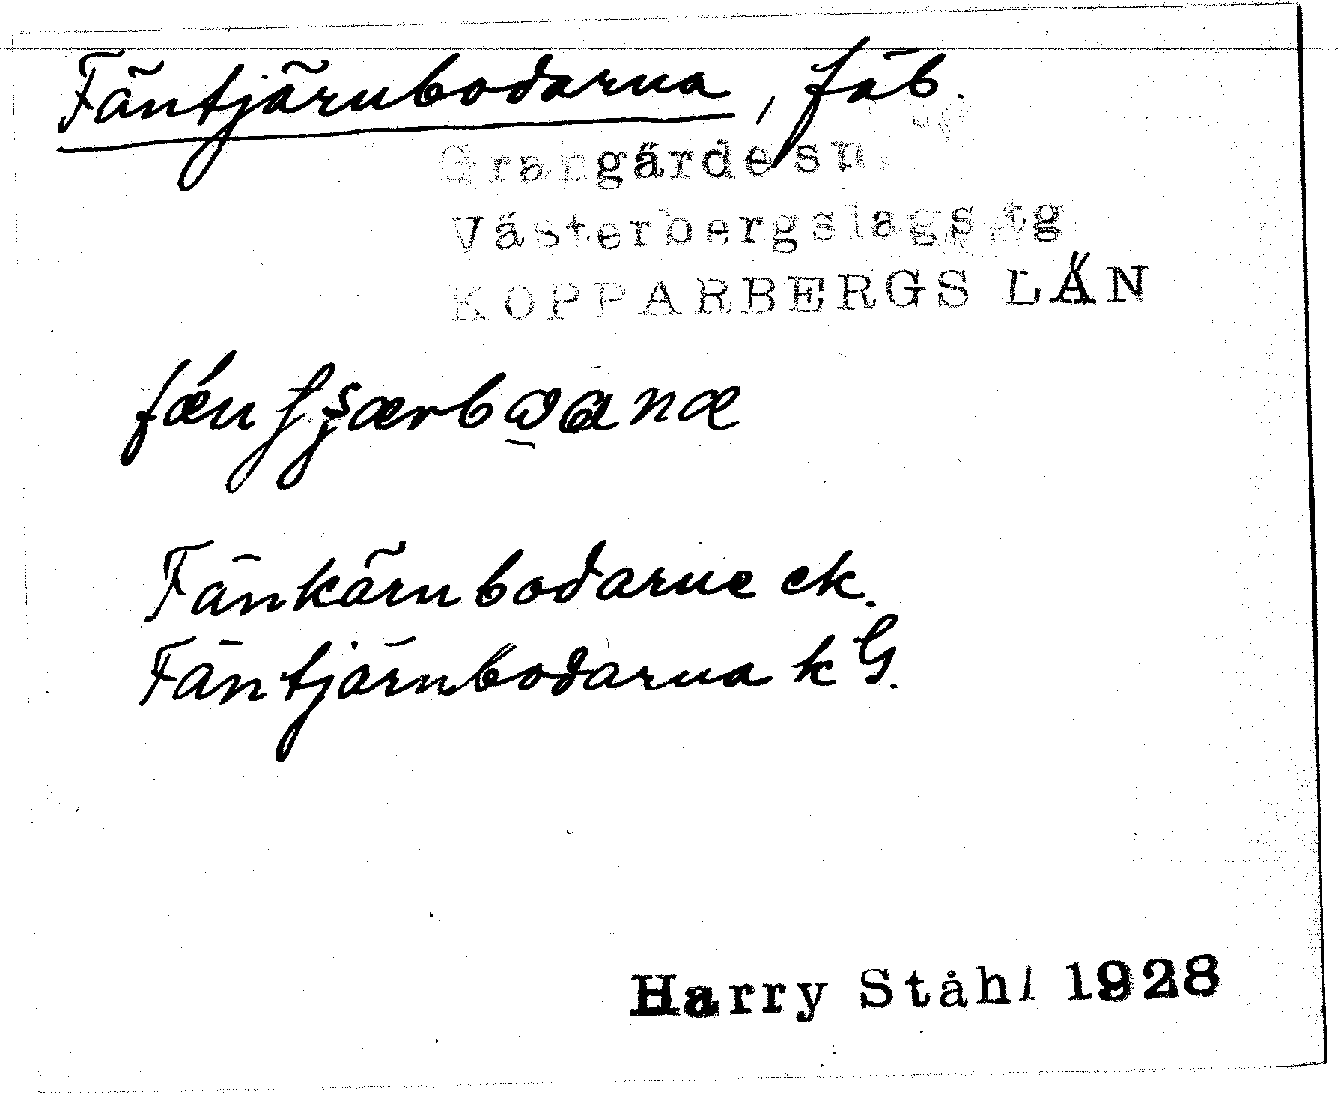 Fäntjärnbodarna, fäb.
Grangärde sn.
Västerbergslags tg
KOPPARBERGS LÄN
Fänkärnbodarne ek.
Fäntjärnbodarna k G.
Harry Ståhl 1928